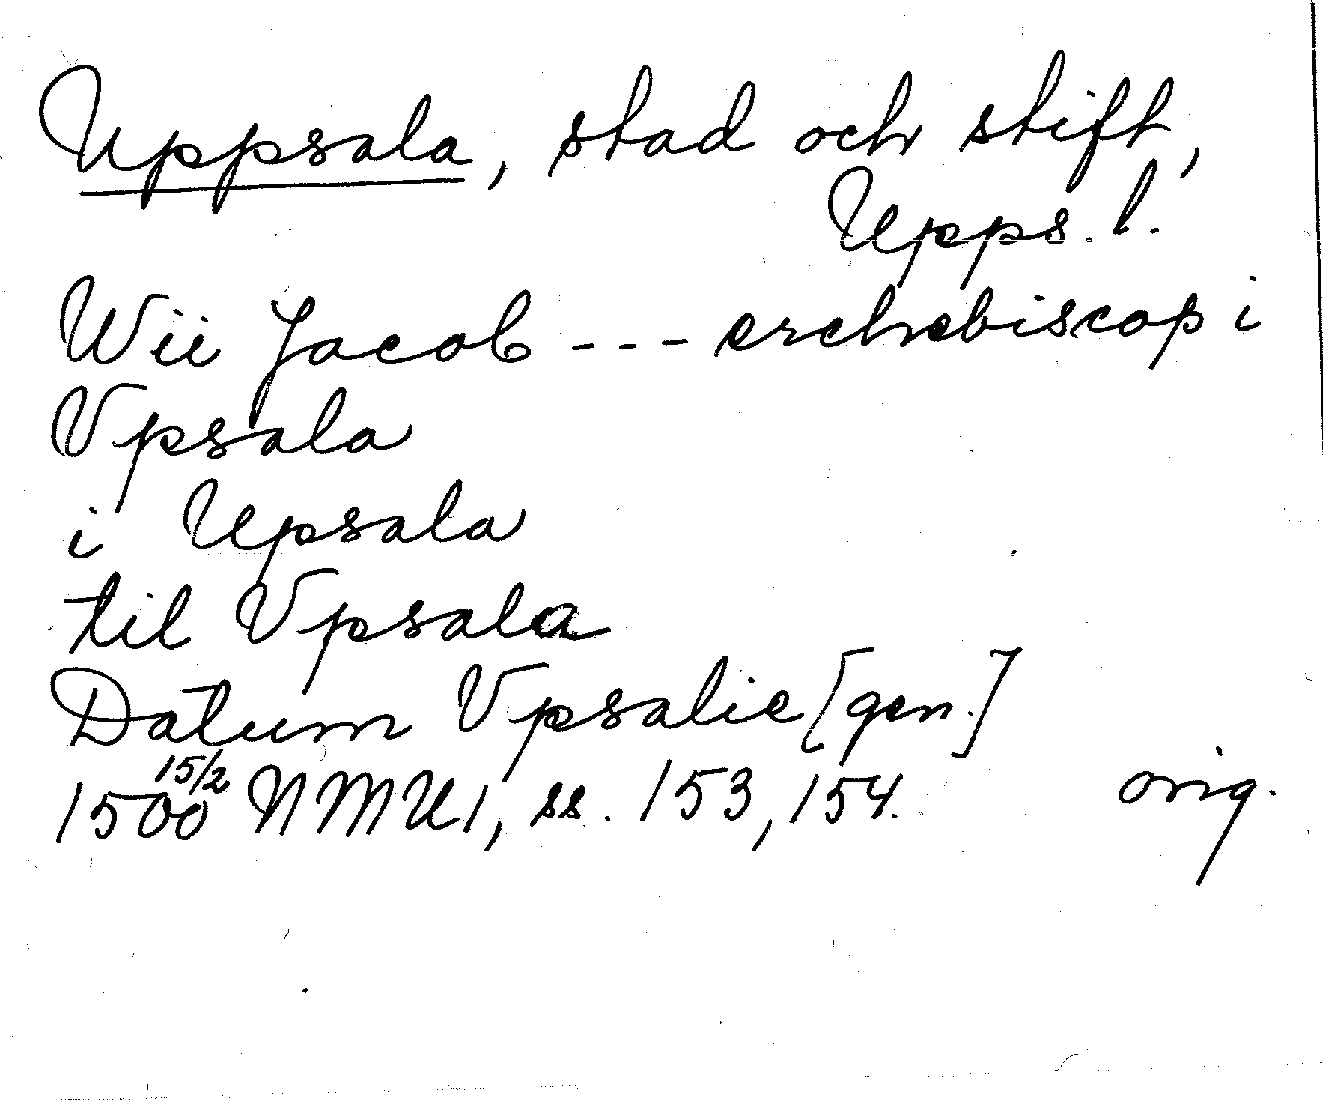 Uppsala, stad och stift,
Upps. l.
Wii Jacob --- erchebiscop i
Vpsala
i Upsala
til Vpsala
Datum Vpsalie [gen.]
1500 15/2 NMU1, ss. 153, 154. orig.